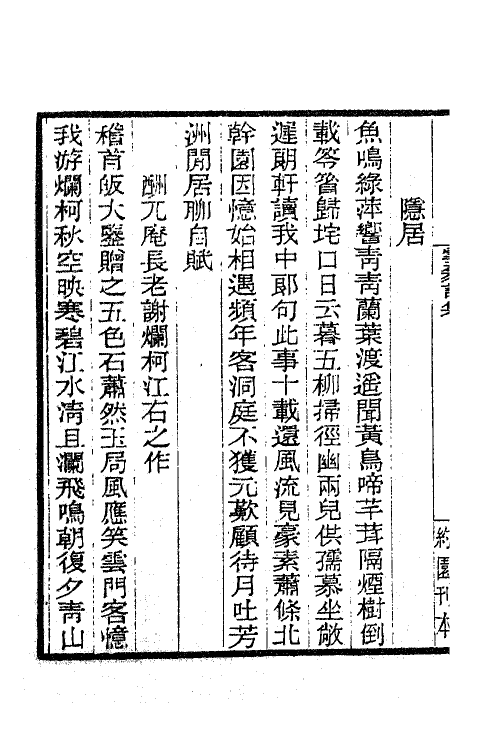 隱居
魚鳴綠萍響靑靑蘭葉渡遥聞黃鳥啼芊茸隔煙樹倒
載答箵歸垞口日云暮五柳掃徑幽兩兒供孺慕坐敞
遲朗軒讀我中郞句此事十載還風流見豪素蕭條北
幹園因憶始相遇頻年客洞庭不獲元歎顧待月吐芳
洲閒居聊自賦
酬兀庵長老謝爛柯江石之作
稽首皈大鑒贈之五色石蕭然玉局風應笑雲門客憶
我游爛柯秋空映寒碧江水凊且瀾飛鳴朝復夕靑山
約園刊本